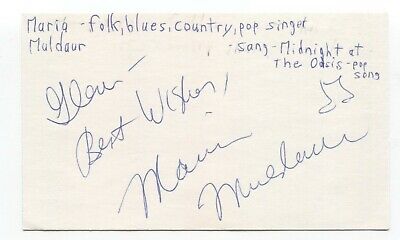 Maria - folk, blues, country, pop singer
Muldaur
- sang - Midnight at
The Oasis - pop
song
Glen -
Best Wishes!
Maria
Muldaur